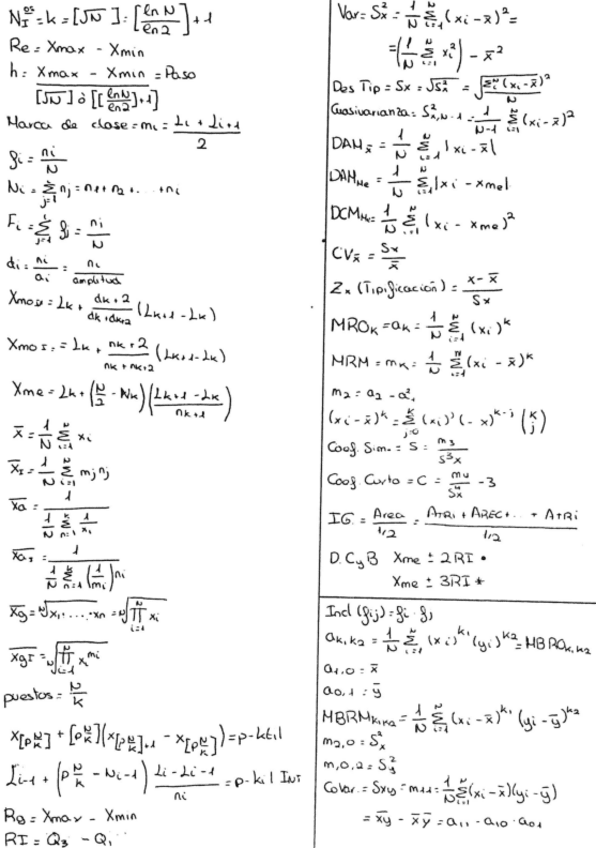 N_I^os = k = [√N] ; [ln N / ln 2] + 1
Re = Xmax - Xmin
h = (Xmax - Xmin) / ([√N] ò [[ln N / ln 2] + 1]) = Paso
Marca de clase = mi = (Li + Li+1) / 2
fi = ni / N
Ni = Σ_{j=1}^{i} nj = n1 + n2 + ... + ni
Fi = Σ_{j=1}^{i} fj = ni / N
di = ni / ai = ni / amplitud
Xmo = Lk + (dk+2 / (dk + dk+2)) (Lk+1 - Lk)
Xmo I. = Lk + (nk+2 / (nk + nk+2)) (Lk+1 - Lk)
Xme = Lk + (N/2 - Nk) ((Lk+1 - Lk) / nk+1)
x̄ = 1/N Σ_{i=1}^{N} xi
x̄I = 1/N Σ_{i=1}^{N} mj nj
x̄a = 1 / (1/N Σ_{n=1}^{k} 1/xi)
x̄aI = 1 / (1/N Σ_{n=1}^{k} (1/mi) ni)
x̄g = ᴺ√(x1 · ... · xn) = ᴺ√(∏_{i=1}^{N} xi)
x̄gI = ᴺ√(∏_{i=1}^{N} xi^mi)
puestos = N/k
x[p N/k] + [p N/k] (x[p N/k]+1 - x[p N/k]) = p-ktil
Li-1 + (p N/k - Ni-1) (Li - Li-1) / ni = p-kil INT
Rg = Xmax - Xmin
RI = Q3 - Q1
Var = S²x = 1/N Σ_{i=1}^{N} (xi - x̄)² =
= (1/N Σ_{i=1}^{N} xi²) - x̄²
Des Tip = Sx = √S²x = √(Σ_i^N (xi - x̄)² / N)
Cuasivarianza = S²x,N-1 = 1/(N-1) Σ_{i=1}^{N} (xi - x̄)²
DAM x̄ = 1/N Σ_{i=1}^{N} |xi - x̄|
DAM Me = 1/N Σ_{i=1}^{N} |xi - xme|
DCM Me = 1/N Σ_{i=1}^{N} (xi - xme)²
CV x̄ = Sx / x̄
Zx (Tipificación) = (x - x̄) / Sx
MROk = ak = 1/N Σ_{i=1}^{N} (xi)^k
MRM = mk = 1/N Σ_{i=1}^{N} (xi - x̄)^k
m2 = a2 - a1²
(xi - x̄)^k = Σ_{j=0}^{k} (xi)^j (-x)^{k-j} (k j)
Coef. Sim. = S = m3 / S³x
Coef. Curto = C = m4 / S⁴x - 3
IG = Area / 1/2 = (ATRI + AREC + ... + ATRi) / 1/2
D. C y B Xme ± 2RI •
Xme ± 3RI *
Incl (fij) = fi · fj
ak1,k2 = 1/N Σ_{i=1}^{N} (xi)^k1 (yi)^k2 = MBROk1,k2
a1,0 = x̄
a0,1 = ȳ
MBRMk1,k2 = 1/N Σ_{i=1}^{N} (xi - x̄)^k1 (yi - ȳ)^k2
m2,0 = S²x
m,0,2 = S²y
Covar. = Sxy = m11 = 1/N Σ_{i=1}^{N} (xi - x̄)(yi - ȳ)
= x̄y - x̄ȳ = a11 - a10 · a01